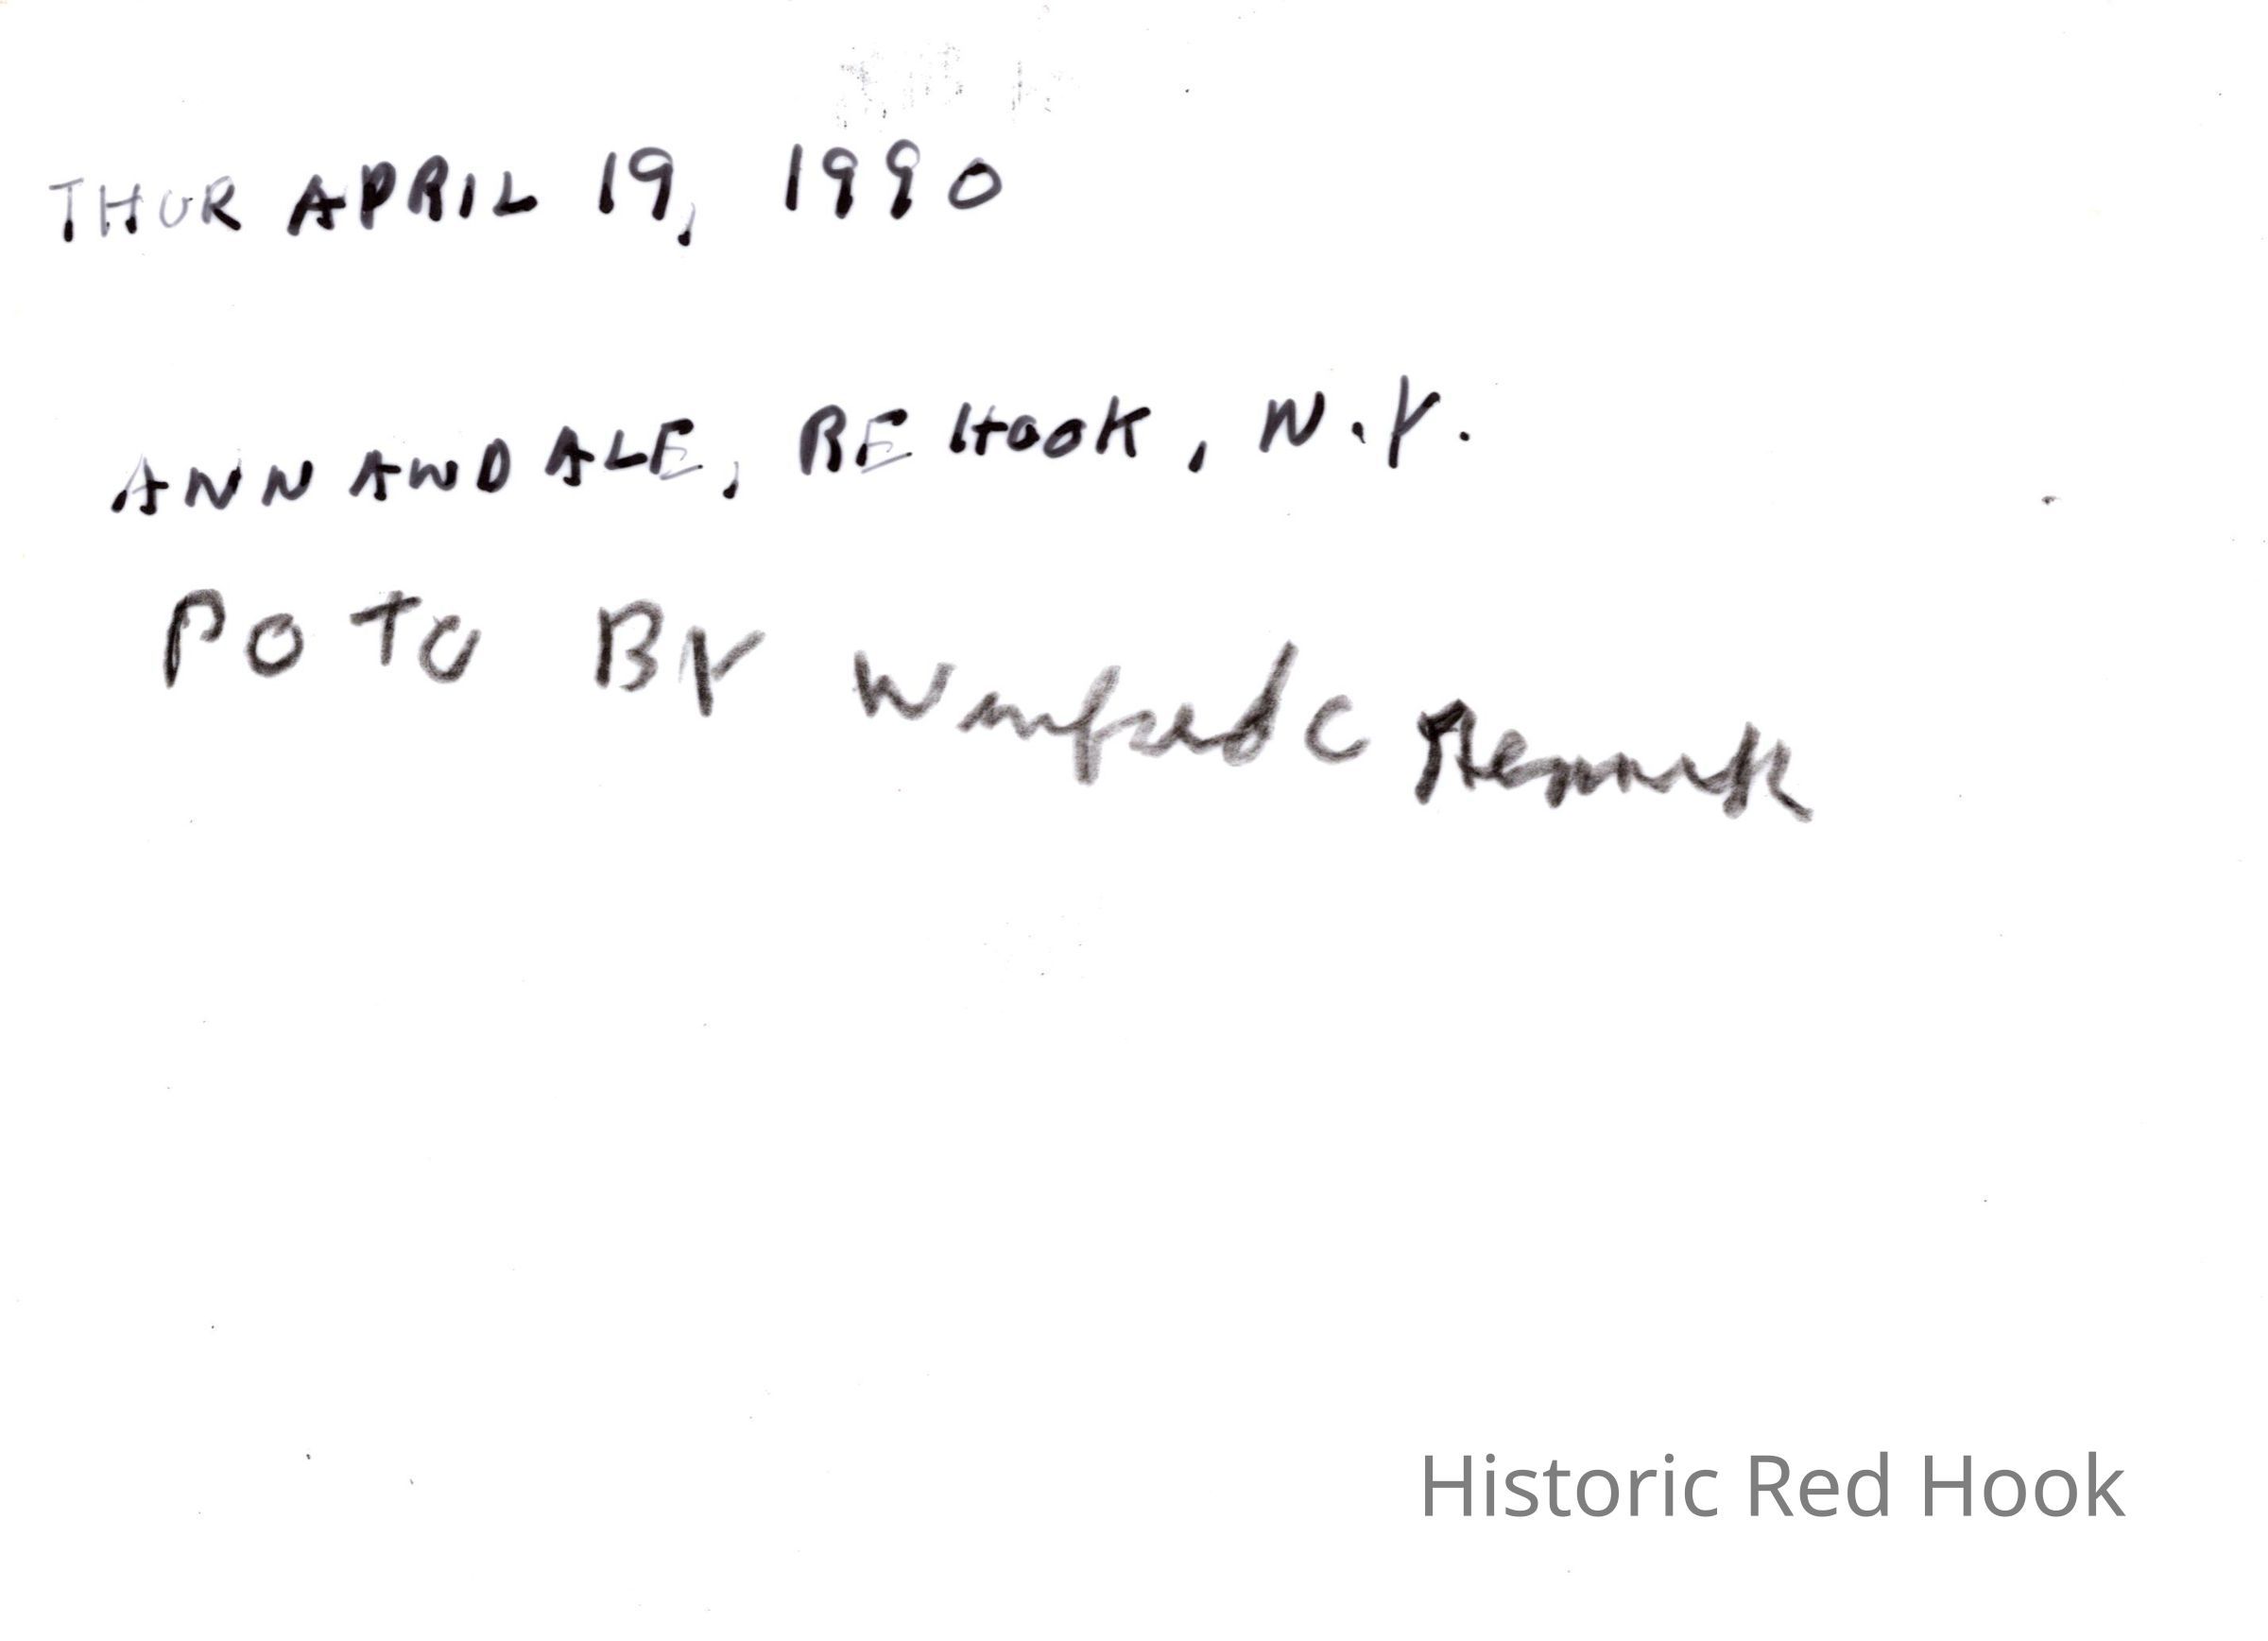 THUR APRIL 19, 1990
ANNANDALE, RE HOOK, N.Y.
POTO BY Winfred C
Historic Red Hook